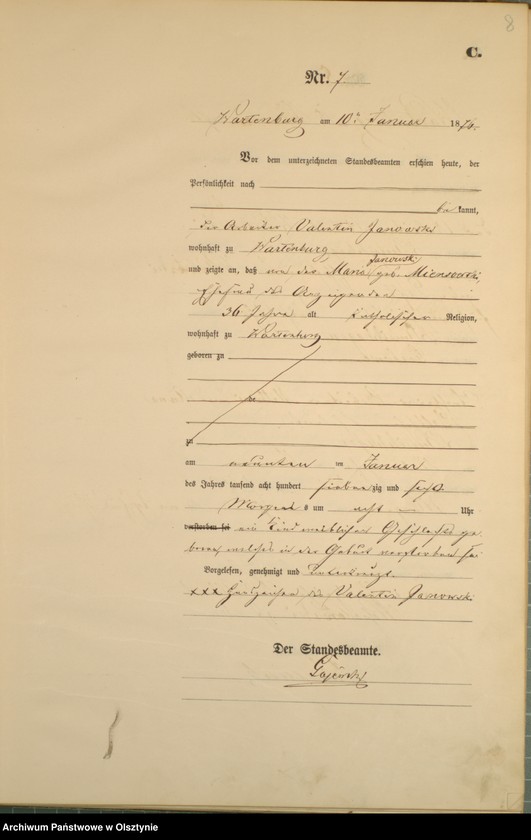 8
C.
Nr. 7.
Wartenburg am 10. Januar 1876.
Vor dem unterzeichneten Standesbeamten erschien heute, der
Persönlichkeit nach
be kannt,
der Arbeiter Valentin Janowski
wohnhaft zu Wartenburg
Janowski
und zeigte an, daß von der Maria geb.
Ehefrau des Anzeigenden
36 Jahre alt katholischer Religion,
wohnhaft zu Wartenburg
geboren zu
zu
am achten ten Januar
des Jahres tausend acht hundert sieben zig und sechs
Morgens um acht Uhr
verstorben sei ein Kind weiblichen Geschlechts ge-
boren welches in der Geburt verstorben sei
Vorgelesen, genehmigt und unterkreuzt.
xxx Handzeichen des Valentin Janowski
Der Standesbeamte.
Archiwum Państwowe w Olsztynie